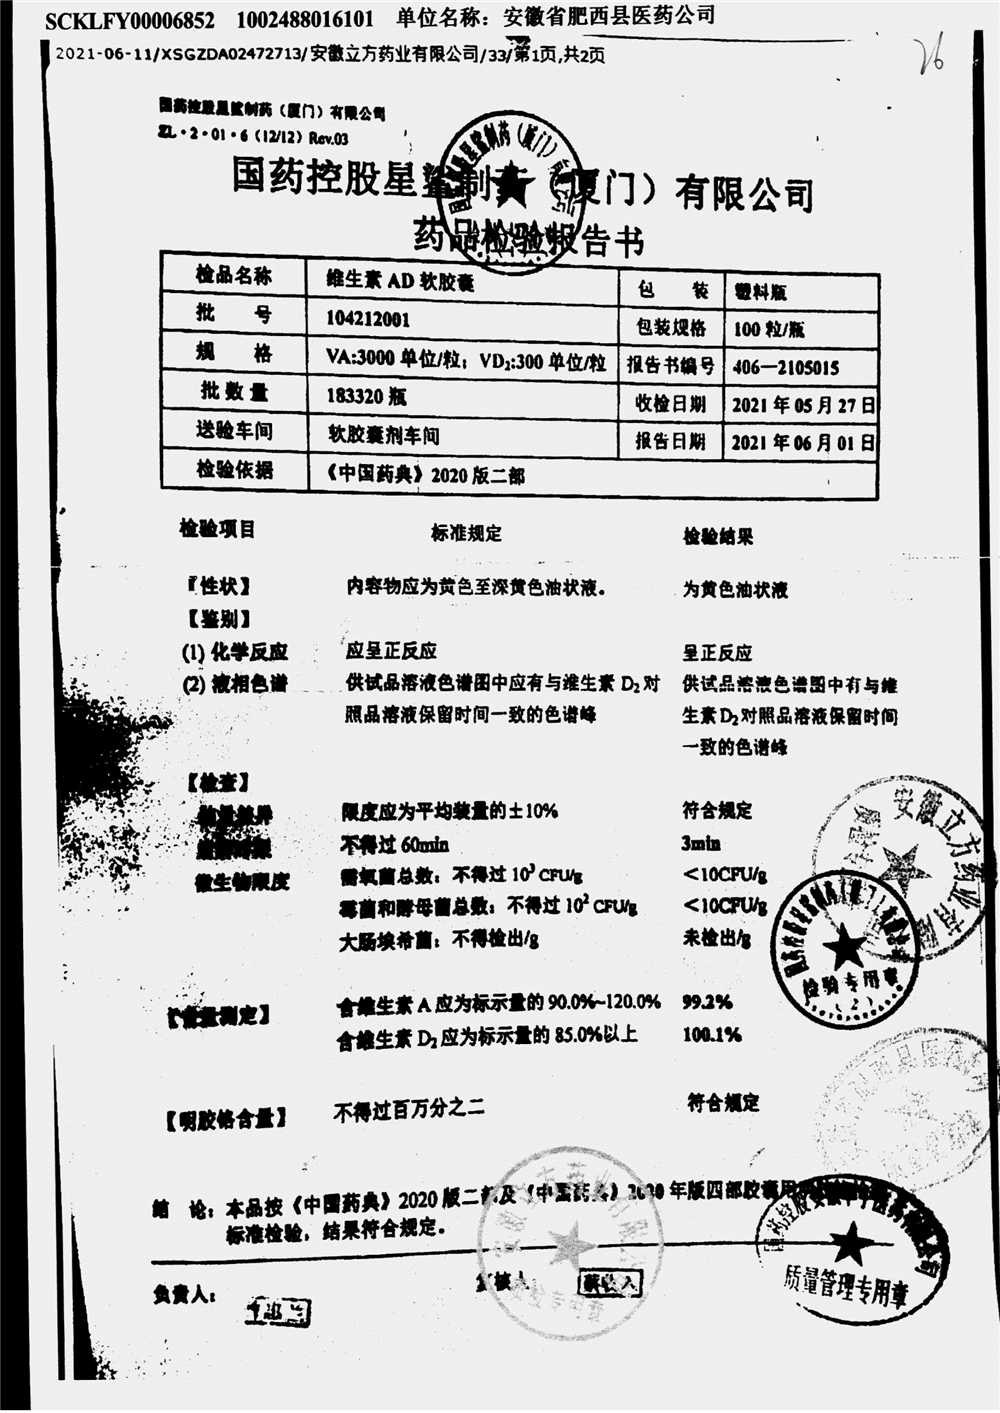 SCKLFY00006852 1002488016101 单位名称：安徽省肥西县医药公司
2021-06-11/XSGZDA02472713/安徽立方药业有限公司/33/第1页,共2页
26
国药控股星鲨制药（厦门）有限公司
ZL·2·01·6（12/12）Rev.03
国药控股星鲨制药（厦门）有限公司
药品检验报告书
检品名称 维生素 AD 软胶囊 包 装 塑料瓶
批 号 104212001 包装规格 100 粒/瓶
规 格 VA:3000 单位/粒；VD₂:300 单位/粒 报告书编号 406—2105015
批数量 183320 瓶 收检日期 2021 年 05 月 27 日
送验车间 软胶囊剂车间 报告日期 2021 年 06 月 01 日
检验依据 《中国药典》2020 版二部
检验项目 标准规定 检验结果
【性状】 内容物应为黄色至深黄色油状液。 为黄色油状液
【鉴别】
(1) 化学反应 应呈正反应 呈正反应
(2) 液相色谱 供试品溶液色谱图中应有与维生素 D₂对 供试品溶液色谱图中有与维
照品溶液保留时间一致的色谱峰 生素D₂对照品溶液保留时间
一致的色谱峰
【检查】
限度应为平均装量的±10% 符合规定
不得过 60min 3min
微生物限度 需氧菌总数：不得过 10³ CFU/g <10CFU/g
霉菌和酵母菌总数：不得过 10² CFU/g <10CFU/g
大肠埃希菌：不得检出/g 未检出/g
【含量测定】 含维生素 A 应为标示量的 90.0%~120.0% 99.2%
含维生素 D₂应为标示量的 85.0%以上 100.1%
【明胶铬含量】 不得过百万分之二 符合规定
结 论：本品按《中国药典》2020 版二部及《中国药典》2020 年版四部胶囊用
标准检验，结果符合规定。
负责人： 复核人
安徽立方药业有限
检验专用章
（2）
质量管理专用章